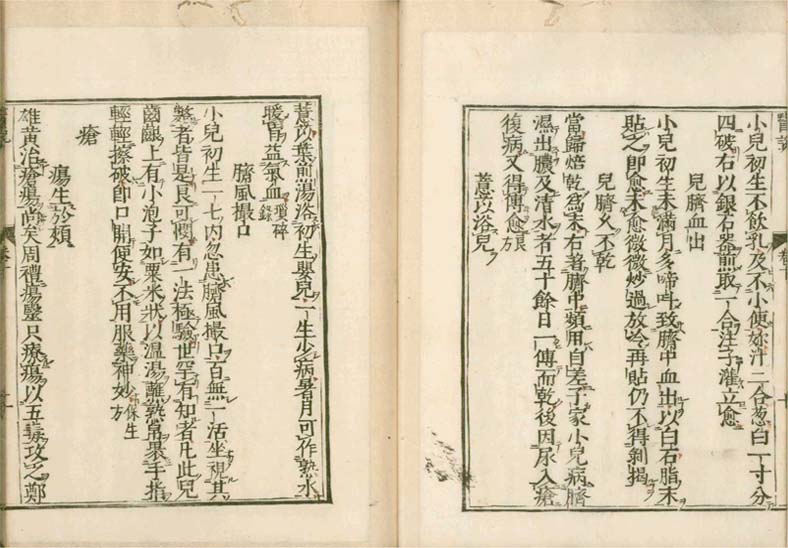 小兒初生不飲乳及不小便妳汁二合葱白一寸分
四破右以銀石器煎取一合注子灌立愈
兒臍血出
小兒初生未滿月多啼叫致臍中血出以白石脂末
貼之即愈未愈微微炒過放冷再貼仍不得剝揭
兒臍久不乾
當歸焙乾爲末右著臍中頻用自差予家小兒病臍
濕出膿及清水者五十餘日一傅而乾後因尿入瘡
復病又得傅愈良方
薏苡浴兒
薏苡葉煎湯浴初生嬰兒一生少病暑月可作熟水
暖胃益氣血瑣碎錄
臍風撮口
小兒初生一七内忽患臍風撮口百無一活坐視其
斃者皆是良可憫有一法極驗世罕有知者凡此兒
齒齦上有小泡子如粟米狀以温湯蘸熟帛裹手指
輕輕擦破即口開便安不用服藥神妙保生方
瘡
瘍生於頰
雄黄治瘡瘍尚矣周禮瘍醫只療瘍以五毒攻之鄭